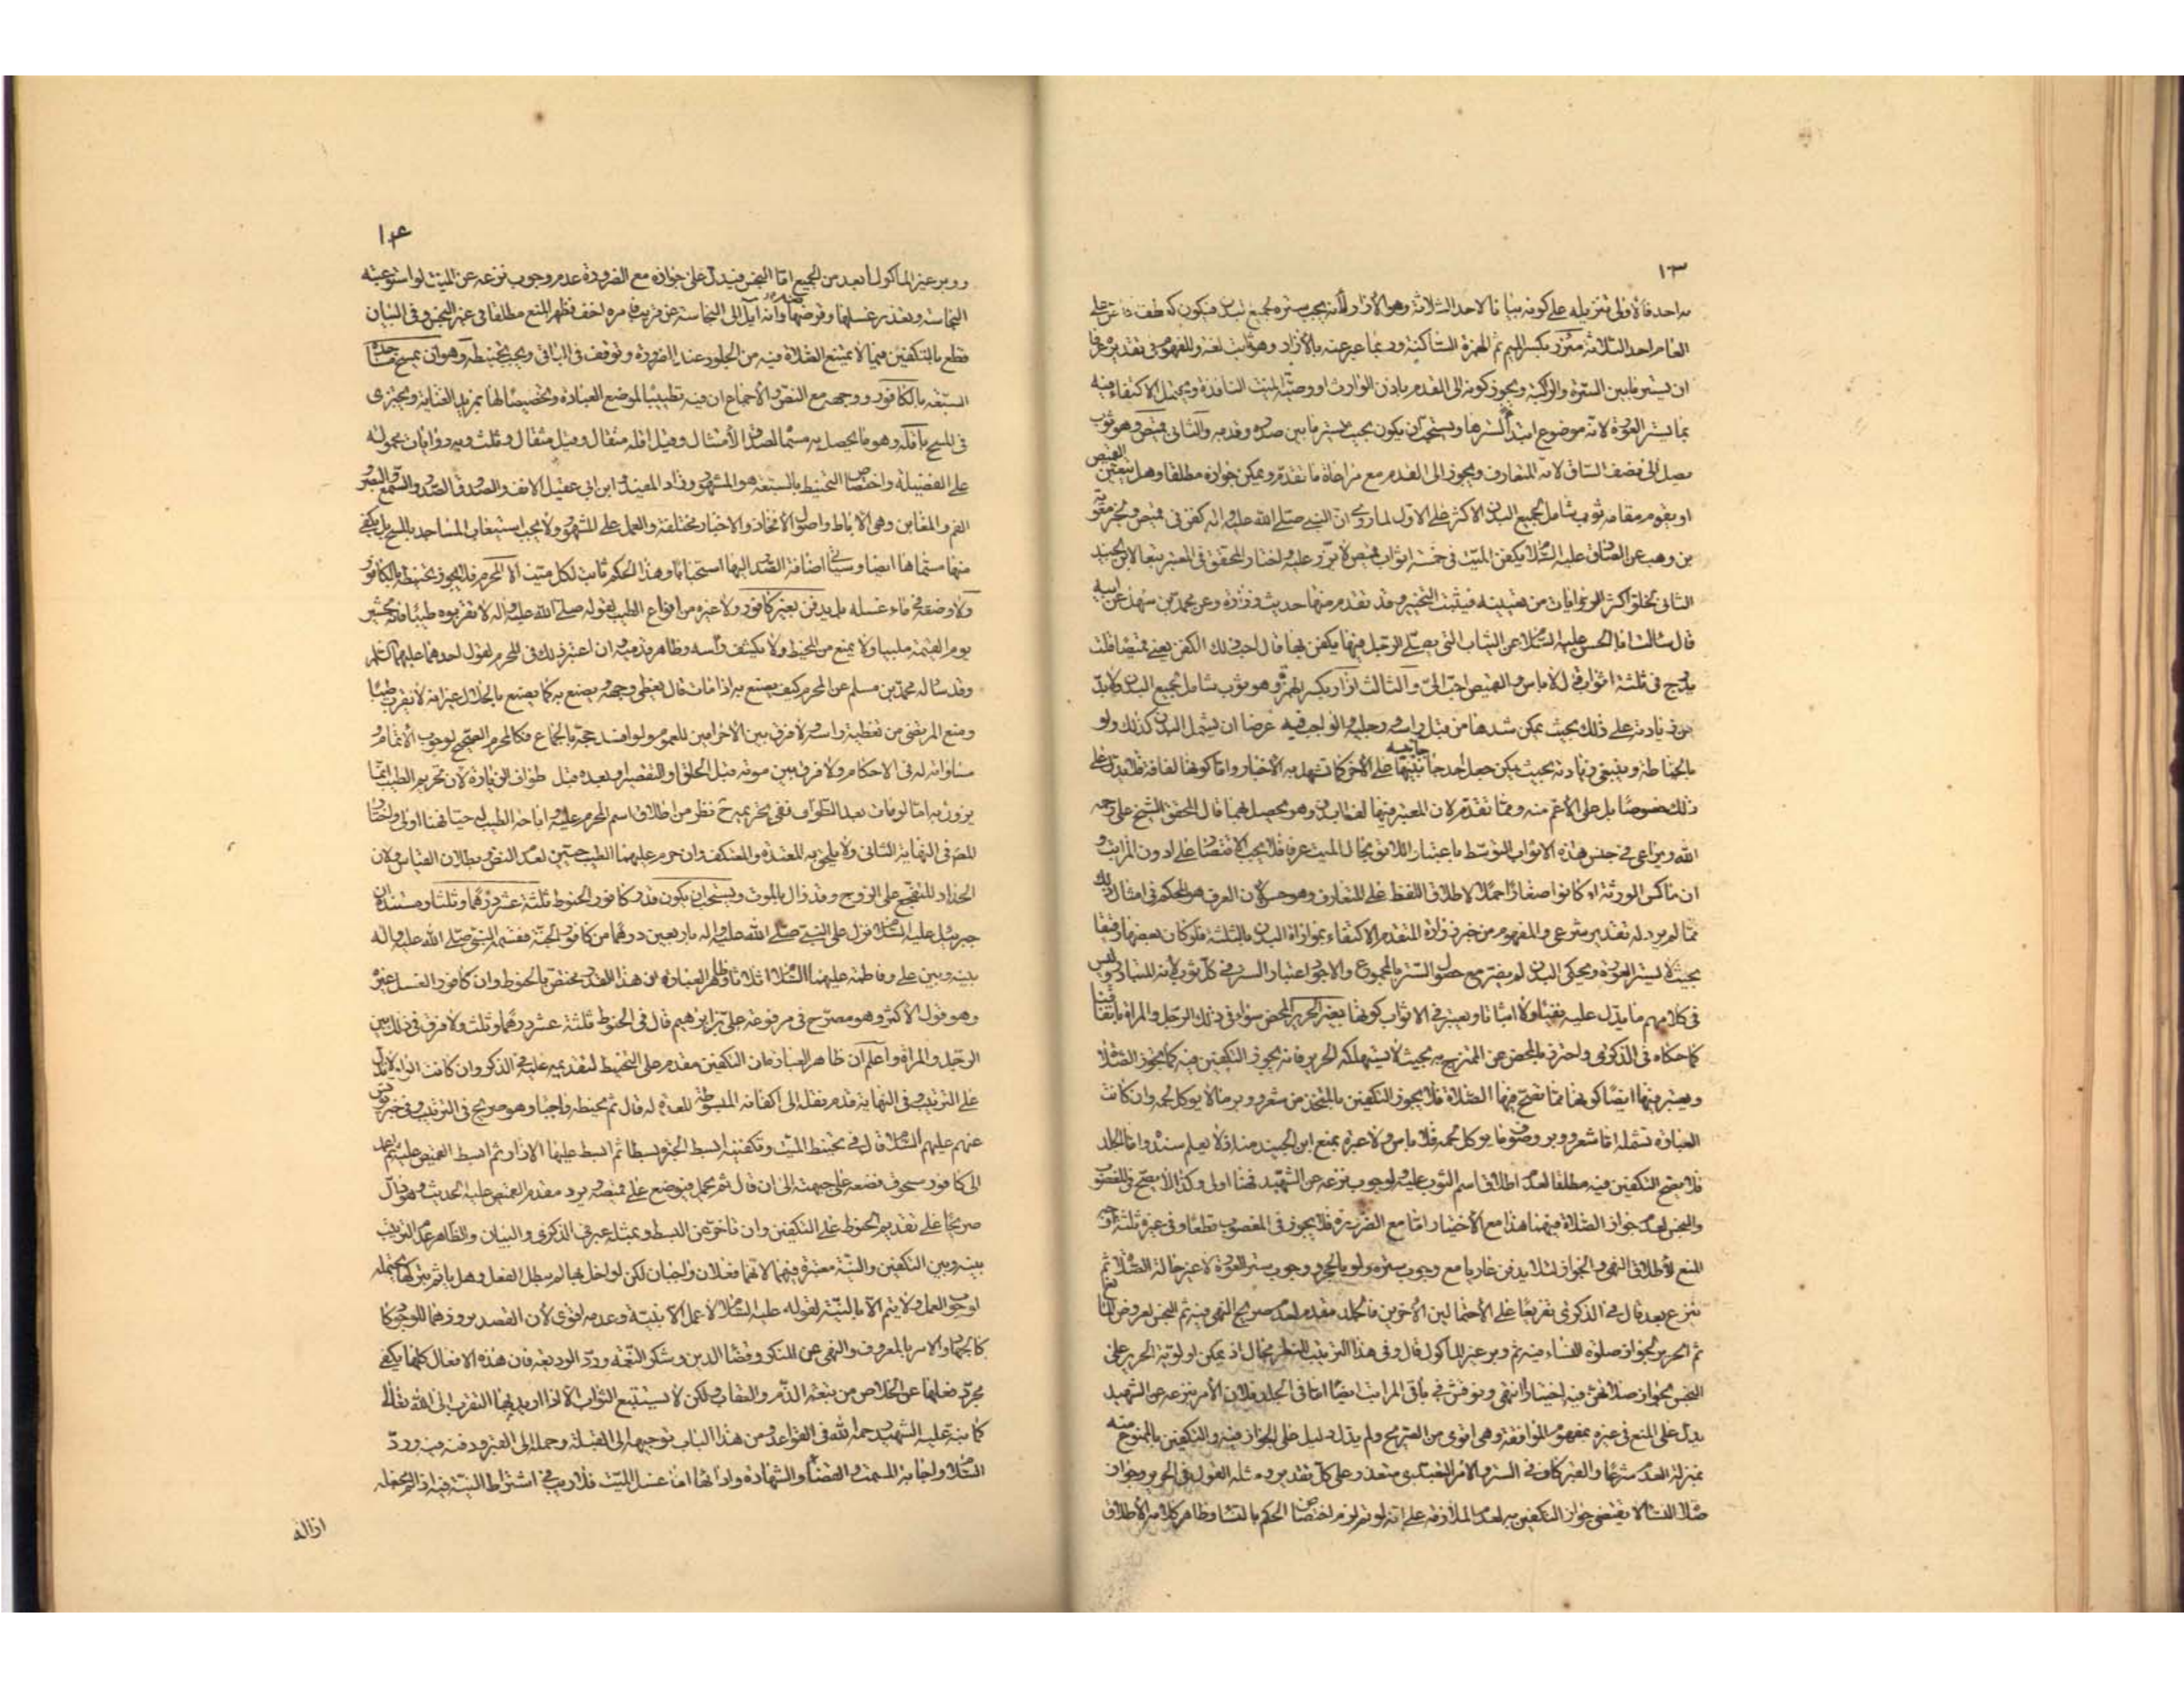 ١٣
العام احد الثلاثة مئزر بكسر الميم ثم الهمزة الساكنة وربما عبر عنه بالازار وهو ثابت لغة والمفهوم في تقديره عرفا
ان يستر ما بين السرة والركبة ويجوز كونه الى القدم باذن الوارث او وصية الميت النافذة ويحتمل الاكتفاء فيه
بما يستر العورة لانه موضوع ابتداء لسترها ويستحب ان يكون بحيث يستر ما بين صدره وقدميه والثاني قميص وهو ثوب
يصل الى نصف الساق لانه المتعارف ويجوز الى القدم مع مراعاة ما تقدم ويمكن جوازه مطلقا وهل يتعين القميص
او يقوم مقامه ثوب شامل لجميع البدن الاكثر على الاول لما روي ان النبي صلى الله عليه واله كفن في قميص
بن وهب عن الصادق عليه السلام يكفن الميت في خمسة اثواب قميص لا يزر عليه واختار المحقق في المعتبر تبعا لابن الجنيد
الثاني لخلو اكثر الروايات من تعيينه فيثبت التخيير وقد تقدم منها حديث زرارة وعن محمد بن سهل عن ابيه
قال سالت ابا الحسن عليه السلام عن الثياب التي يصلي الرجل فيها يكفن بها قال احب ذلك الكفن يعني قميصا قلت
يدرج في ثلثة اثواب قال لا باس والقميص احب الي والثالث ازار بكسر الهمزة وهو ثوب شامل لجميع البدن ولا بد
من زيادته على ذلك بحيث يمكن شدها من قبل راسه ورجليه والواجب فيه عرضا ان يشمل البدن كذلك ولو
بالخياطة وينبغي زيادته بحيث يمكن جعل احد جانبيه على الاخر كما تشهد به الاخبار واما كونها لفافة فلا يدل على
ذلك خصوصا بل على الاعم منه ومما تقدم لان المعتبر فيها لف البدن وهو يحصل بهما قال المحقق الشيخ علي رحمه
الله ويراعى في جنس هذه الاثواب التوسط باعتبار اللائق بحال الميت عرفا فلا يجب الاقتصار على ادون المراتب و
ان ماكس الورثة او كانوا صغارا حملا لاطلاق اللفظ على المتعارف وهو حسن لان العرف هو المحكم في امثال ذلك
مما لم يرد له تقدير شرعي والمفهوم من خبر زرارة المتقدم الاكتفاء بمواراة البدن بالثلثة فلو كان بعضها رقيقا
بحيث لا يستر العورة ويحكي البدن لم يضر مع حصول الستر بالمجموع والاجود اعتبار الستر في كل ثوب لانه المتبادر وليس
في كلامهم ما يدل عليه نفيا ولا اثباتا ويعتبر في الاثواب كونها بغير الحرير المحض سواء في ذلك الرجل والمراة باتفاقنا
كما حكاه في الذكرى واحترز بالمحض عن الممتزج به بحيث لا يستهلكه الحرير فانه يجوز التكفين فيه كما يجوز الصلاة
ويعتبر فيها ايضا كونها مما تصح فيها الصلاة فلا يجوز التكفين بالمتخذ من شعر ووبر ما لا يوكل لحمه وان كانت
العبارة تشمله اما شعر ووبر وصوف ما يوكل لحمه فلا باس ولا عبرة بمنع ابن الجنيد منه اذ لا يعلم سنده واما الجلد
فلا يصح التكفين فيه مطلقا لعدم اطلاق اسم الثوب عليه ولوجوب نزعه عن الشهيد فهنا اولى وكذا لا يصح في المغصوب
والنجس لعدم جواز الصلاة فيهما هذا مع الاختيار اما مع الضرورة فلا يجوز في المغصوب قطعا وفي غيره ثلثة اوجه
المنع لاطلاق النهي والجواز لئلا يدفن عاريا مع وجوب ستره ولو بالحجر ووجوب ستر العورة لا غير حالة الصلاة ثم
ينزع بعد قال في الذكرى تفريعا على الاحتمالين الاخرين فالجلد مقدم لعدم صريح النهي فيه ثم النجس لعروض المانع
ثم الحرير لجواز صلوة النساء فيه ثم وبر غير الماكول قال وفي هذا الترتيب للنظر مجال اذ يمكن اولوية الحرير على
النجس لجواز صلاتهن فيه اختيارا انتهى وتوقف في باقي المراتب ايضا اما في الجلد فلان الامر بنزعه عن الشهيد
يدل على المنع في غيره بمفهوم الموافقة وهي اقوى من الصريح ولم يدل دليل على الجواز فيه والتكفين بالممنوع منه
بمنزلة العدم شرعا والقبر كاف في الستر والامر التعبدي متعذر وعلى كل تقدير ومثله القول في الحرير وجواز
صلاة النساء لا يقتضي جواز التكفين به لعدم الملازمة على انه لو تم لزم اختصاص الحكم بالنساء وظاهر كلامه الاطلاق
١٤
ووبر غير الماكول ابعد من الجميع اما النجس فيدل على جوازه مع الضرورة عدم وجوب نزعه عن الميت لو استوعبته
النجاسة وتعذر غسلها وقرضها وانه آيل الى النجاسة عن قريب فامره اخف فظهر المنع مطلقا في غير النجس وفي البيان
قطع بالتكفين فيما لا يمتنع الصلاة فيه من الجلود عند الضرورة وتوقف في الباقي ويجب تحنيطه وهو ان يمسح مساجده
السبعة بالكافور ووجهه مع النص والاجماع ان فيه تطييبا لموضع العبادة وتخصيصا لها بمزيد العناية ويجزى
في المسح باقله وهو ما يحصل به مسماه لصدق الامتثال وقيل اقله مثقال وقيل مثقال وثلث وبه روايات محمولة
على الفضيلة واختصاص التحنيط بالسبعة هو المشهور وزاد المفيد وابن ابي عقيل الانف والصدوق الصدر والسمع والبصر و
الفم والمغابن وهي الاباط واصول الافخاذ والاخبار مختلفة والعمل على المشهور ولا يجب استيعاب المساجد بالمسح بل يكفي
منها مسماها ايضا وسياتي اضافة الصدر اليها استحبابا وهذا الحكم ثابت لكل ميت الا المحرم فلا يجوز تحنيطه بالكافور
ولا وضعه في ماء غسله بل يدفن بغير كافور ولا غيره من انواع الطيب لقوله صلى الله عليه واله لا تقربوه طيبا فانه يحشر
يوم القيمة ملبيا ولا يمنع من المخيط ولا يكشف راسه وظاهر مذهبه ان اعتبر ذلك في المحرم لقول احدهما عليهما السلام
وقد ساله محمد بن مسلم عن المحرم كيف يصنع به اذا مات قال يغطى وجهه ويصنع به كما يصنع بالحلال غير انه لا يقرب طيبا
ومنع المرتضى من تغطية راسه ولا فرق بين الاحرامين للعموم ولو افسد حجه بالجماع فكالمحرم الصحيح لوجوب الاتمام و
مساواته له في الاحكام ولا فرق بين موته قبل الحلق او التقصير او بعده قبل طواف الزيارة لان تحريم الطيب انما
يزول به اما لو مات بعد الطواف ففي تحريمه ح نظر من اطلاق اسم المحرم عليه واباحة الطيب له حيا فهنا اولى واختار
المصنف في النهاية الثاني ولا يلحق به المعتدة والمعتكف وان حرم عليهما الطيب حيين لعدم النص وبطلان القياس ولان
الحداد للتفجع على الزوج وقد زال بالموت ويستحب ان يكون قدر كافور الحنوط ثلثة عشر درهما وثلثا ومستنده ان
جبرئيل عليه السلام نزل على النبي صلى الله عليه واله باربعين درهما من كافور الجنة فقسمه النبي صلى الله عليه واله
بينه وبين علي وفاطمة عليهما السلام اثلاثا وظاهر العبارة ان هذا القدر مختص بالحنوط وان كافور الغسل غيره
وهو قول الاكثر وهو مصرح في مرفوعة علي بن ابراهيم قال في الحنوط ثلثة عشر درهما وثلث ولا فرق في ذلك بين
الرجل والمراة واعلم ان ظاهر العبارة ان التكفين مقدم على التحنيط لتقديمه عليه في الذكر وان كانت الواو لا تدل
على الترتيب وفي النهاية قدم نقله الى اكفانه المبسوطة المعدة له قال ثم يحنطه واجبا وهو صريح في الترتيب وفي خبر يونس
عنهم عليهم السلام قال في تحنيط الميت وتكفينه ابسط الحبرة بسطا ثم ابسط عليها الازار ثم ابسط القميص عليه ثم اعمد
الى كافور مسحوق فضعه على جبهته الى ان قال ثم يحمل فيوضع على قميصه ويرد مقدم القميص عليه الحديث وهو دال
صريحا على تقديم الحنوط على التكفين وان تاخر عن البسط وبمثله عبر في الذكرى والبيان والظاهر عدم الترتيب
بينه وبين التكفين والنية معتبرة فيهما لانهما فعلان واجبان لكن لو اخل بها لم يبطل الفعل وهل ياثم بتركها يحتمله
لوجوب العمل ولا يتم الا بالنية لقوله عليه السلام لا عمل الا بنية وعدمه اقوى لان القصد بروزهما للوجود
كالجهاد والامر بالمعروف والنهي عن المنكر وقضاء الدين وشكر النعمة ورد الوديعة فان هذه الافعال كلها يكفي
مجرد فعلها عن الخلاص من تبعة الذم والعقاب ولكن لا يستتبع الثواب الا اذا اريد بها التقرب الى الله تعالى
كما نبه عليه الشهيد رحمه الله في القواعد ومن هذا الباب توجيهه الى القبلة وحمله الى القبر ودفنه فيه ورد
السلام واجابة المسمت والقضاء والشهادة وادائها اما غسل الميت فلا ريب في اشتراط النية فيه اذا لم نجعله
ازالة